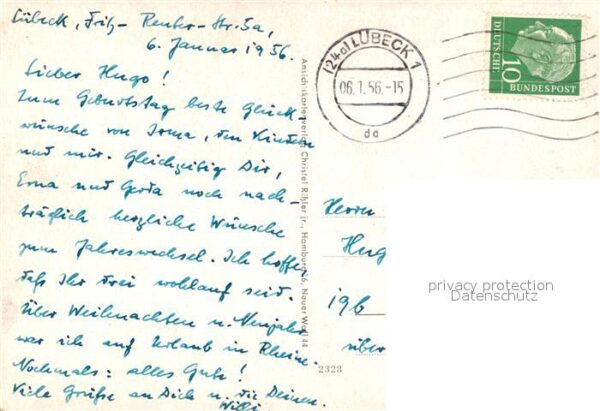 Lübeck, Fritz-Reuter-Str. 5a,
6. Januar 1956.
Lieber Hugo!
Zum Geburtstag beste Glück
wünsche von Irma, den Kindern
und mir. Gleichzeitig Dir,
Erna und Gerda noch nach-
träglich herzliche Wünsche
zum Jahreswechsel. Ich hoffe,
daß Ihr drei wohlauf seid.
Über Weihnachten u. Neujahr
war ich auf Urlaub in Rheine.
Nochmals: alles Gute!
Viele Grüße an Dich u. die Deinen.
Willi
Ansichtskartenverlag Christel Rihler jr., Hamburg 36, Neuer Wall 44
2328
(24a) LÜBECK 1
06.1.56.-15
da
DEUTSCHE
BUNDESPOST
10
Herrn
Hug
19b
über
privacy protection
Datenschutz